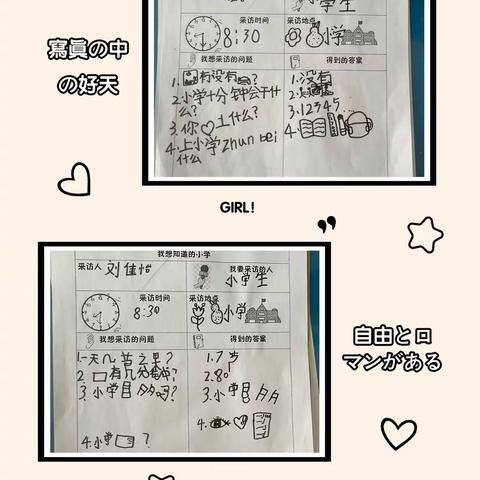 小学生
采访时间
8:30
采访地点
小学
我想采访的问题
得到的答案
1.有没有?
1.没有
2.小学十分钟会干什么?
2.
3.你上什么?
3.12345...
4.上小学zhunbei什么
4.
寫眞の中
の好天
GIRL!
我想知道的小学
采访人
刘佳怡
我要采访的人
小学生
采访时间
8:30
采访地点
小学
我想采访的问题
得到的答案
1.一天几节课?
1.7节
2.有几分钟?
2.80
3.小学目多吗?
3.小学多
4.小学?
4.
自由とロ
マンがある